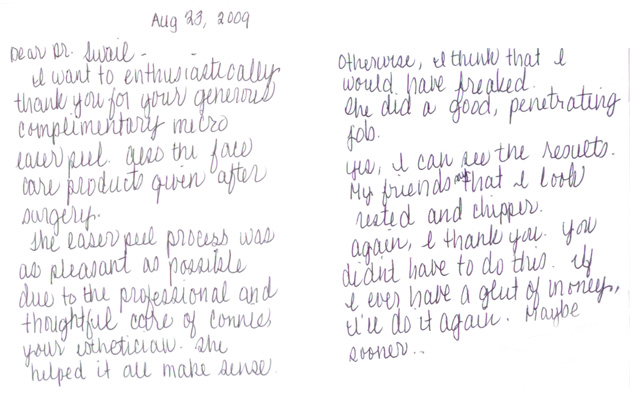 Aug 23, 2009
Dear Dr. Swail -
I want to enthusiastically
thank you for your generous
complimentary micro
laser peel. Also the face
care products given after
surgery.
The laser peel process was
as pleasant as possible
due to the professional and
thoughtful care of Connie,
your esthetician. She
helped it all make sense.
Otherwise, I think that I
would have freaked.
She did a good, penetrating
job.
Yes, I can see the results.
My friends say that I look
rested and chipper.
Again, I thank you. You
didnt have to do this. If
I ever have a glut of money,
I'll do it again. Maybe
sooner..